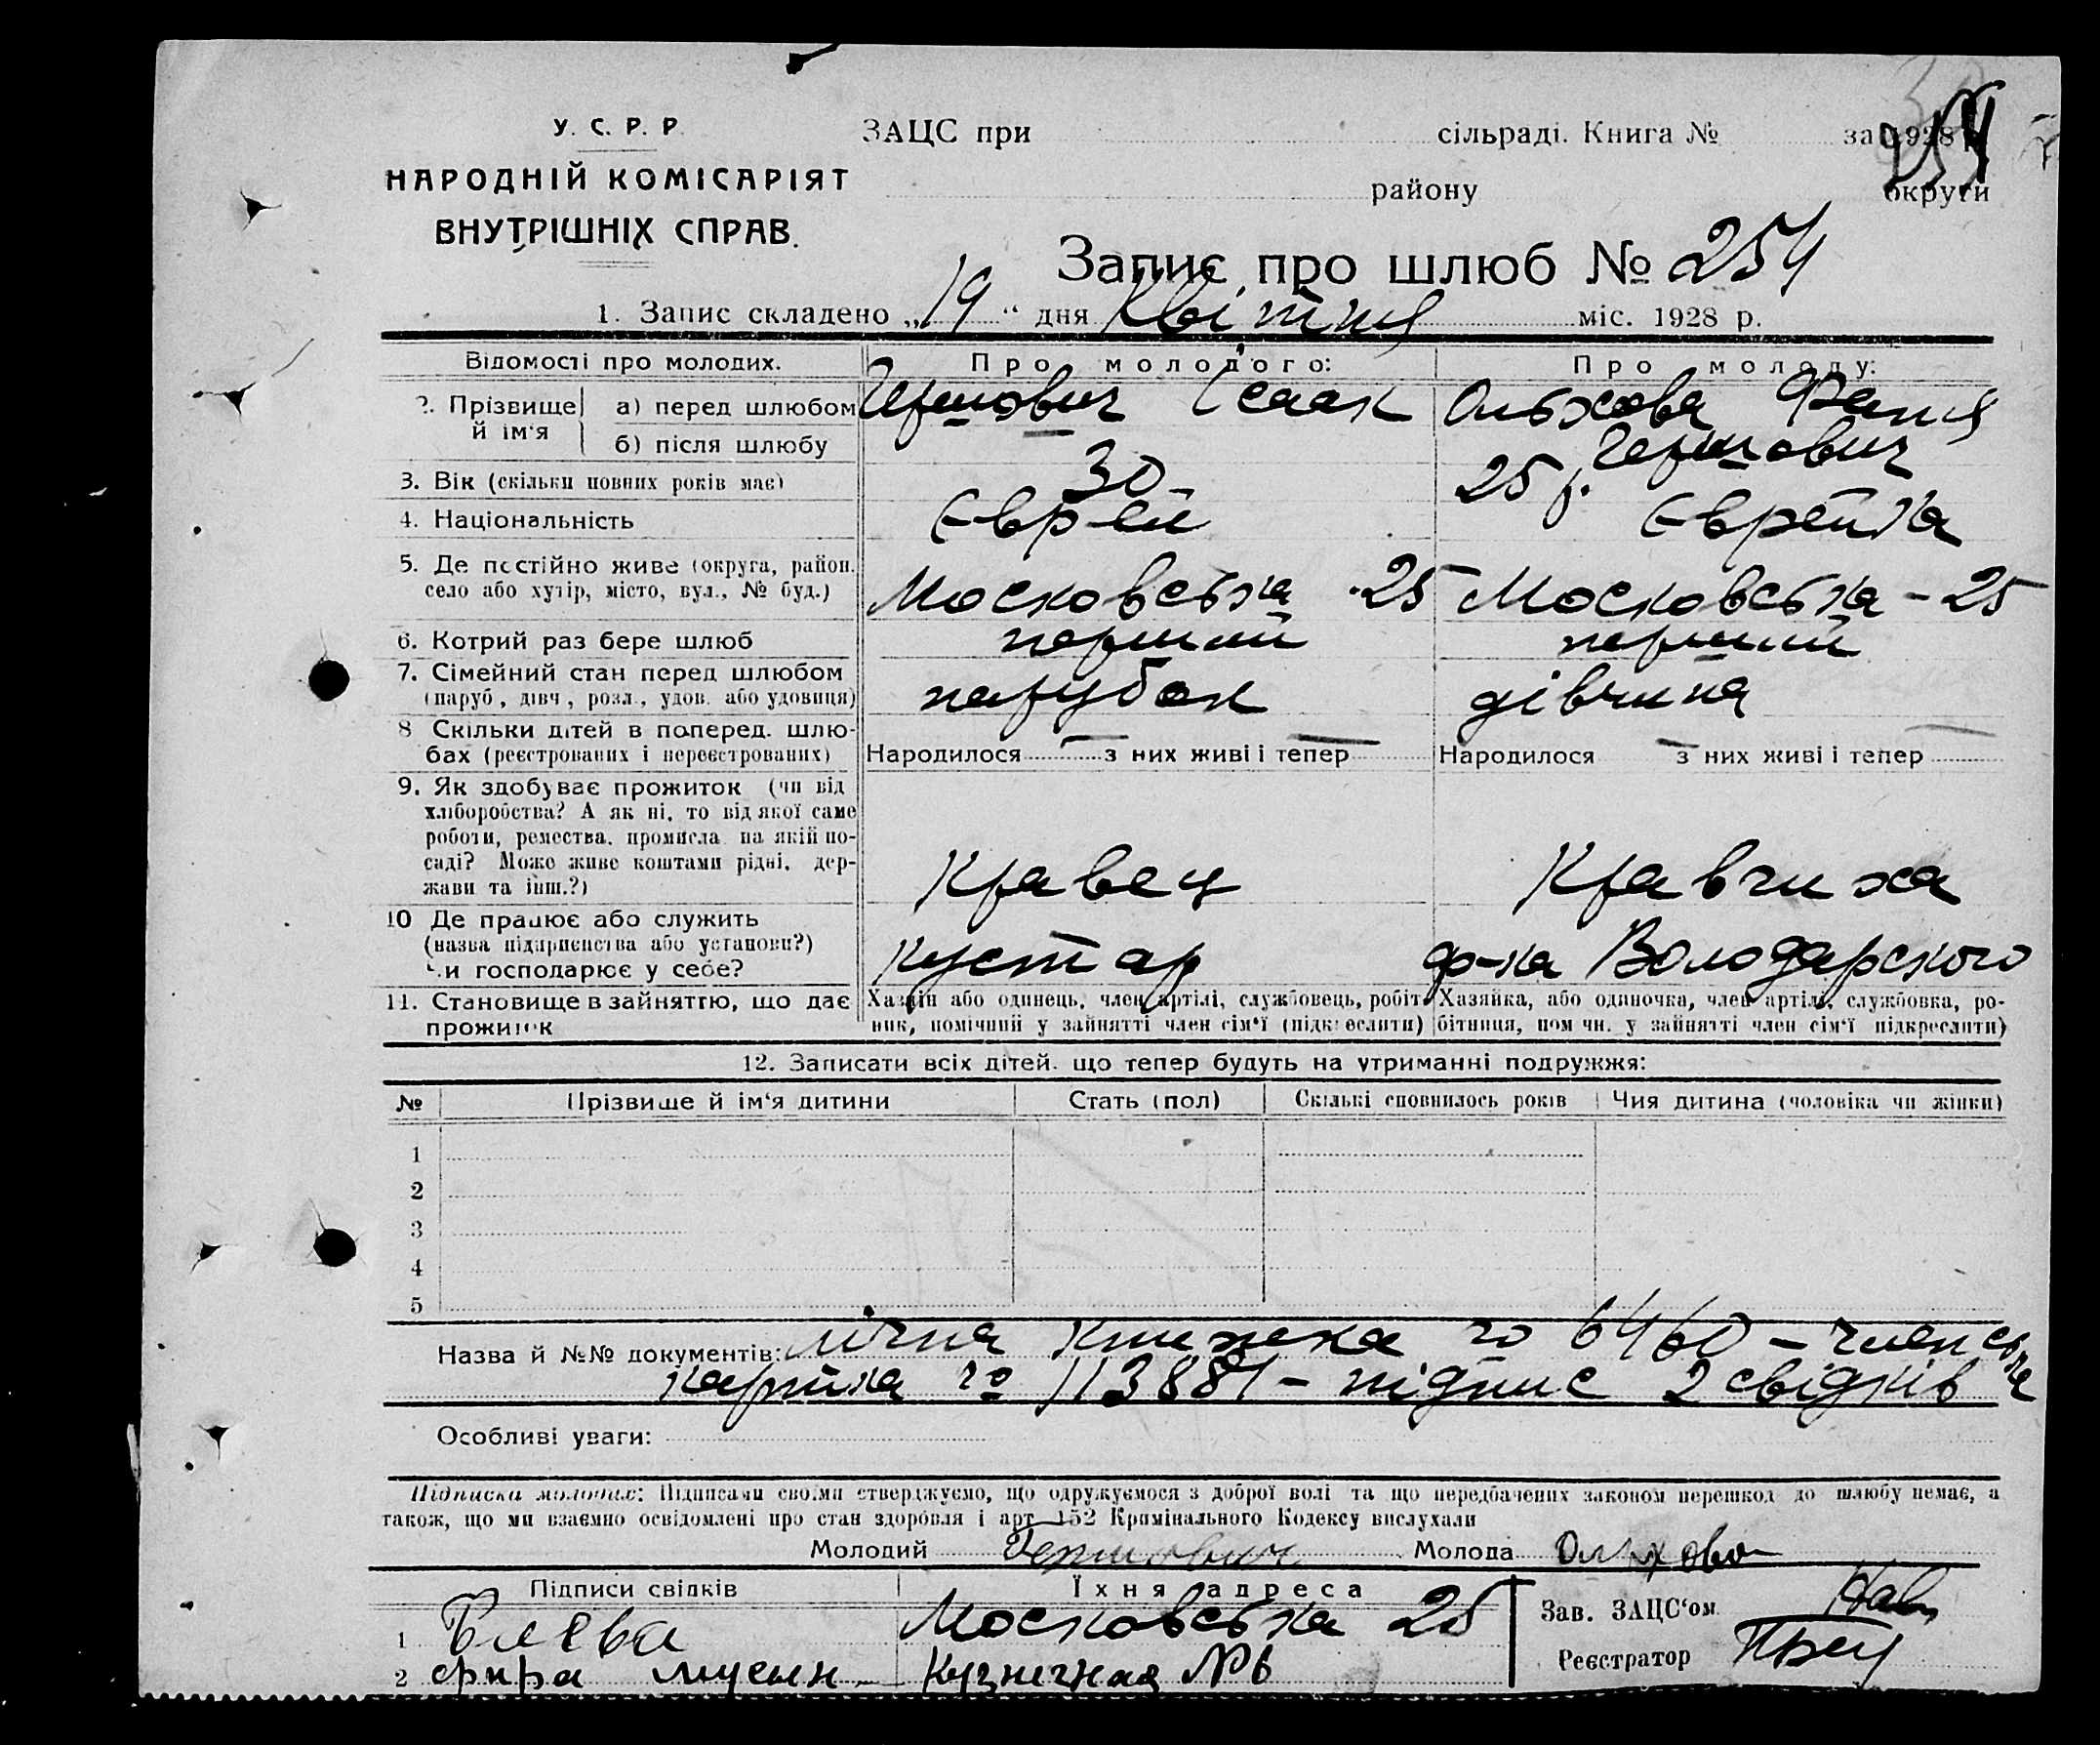 У. С. Р. Р.
НАРОДНІЙ КОМІСАРІЯТ
ВНУТРІШНІХ СПРАВ.
ЗАЦС при сільраді. Книга № за 1928
району округи
Запис про шлюб № 254
1. Запис складено „19“ дня Квітня міс. 1928 р.
Відомості про молодих. Про молодого: Про молоду:
2. Прізвище й ім‘я а) перед шлюбом Гершович Ісаак Ольхова Фаня
б) після шлюбу — Гершович
3. Вік (скільки повних років має) 30 25 р.
4. Національність Єврей Єврейка
5. Де постійно живе (округа, район. село або хутір, місто, вул., № буд.) Московська -25 Московська - 25
6. Котрий раз бере шлюб перший перший
7. Сімейний стан перед шлюбом (паруб, дівч, розл., удов. або удовиця) парубок дівчина
8 Скільки дітей в поперед. шлюбах (реєстрованих і нереєстрованих) Народилося — з них живі і тепер — Народилося — з них живі і тепер
9. Як здобуває прожиток (чи від
хліборобства? А як ні, то від якої саме
роботи, ремества, промисла на якій по-
саді? Може живе коштами рідні, дер-
жави та інш.?) Кравец Кравчиха
10 Де працює або служить
(назва підприємства або установи?)
Чи господарює у себе? Кустар ф-ка Володарского
11. Становище в зайняттю, що дає прожиток
Хазяїн або одинець, член артілі, службовець, робіт-
ник, помічний у зайнятті член сім‘ї (підкреслити)
Хазяйка, або одиночка, член артілі, службовка, ро-
бітниця, пом чн. у зайнятті член сім‘ї підкреслити)
12. Записати всіх дітей. що тепер будуть на утриманні подружжя:
№ Прізвище й ім‘я дитини Стать (пол) Скількі сповнилось років Чия дитина (чоловіка чи жінки)
1
2
3
4
5
Назва й №№ документів: книжка 6460 - членська
картка 113881 - підпис 2 свідків
Особливі уваги:
Підписка молодих: Підписами своїми стверджуємо, що одружуємося з доброї волі та що передбачених законом перешкод до шлюбу немає, а
також, що ми взаємно освідомлені про стан здоровля і арт 152 Кримінального Кодексу вислухали
Молодий Гершович Молода Ольхова
Підписи свідків Їхня адреса
1 Московська 25 Зав. ЗАЦС‘ом
2 Кузнечная №6 Реєстратор